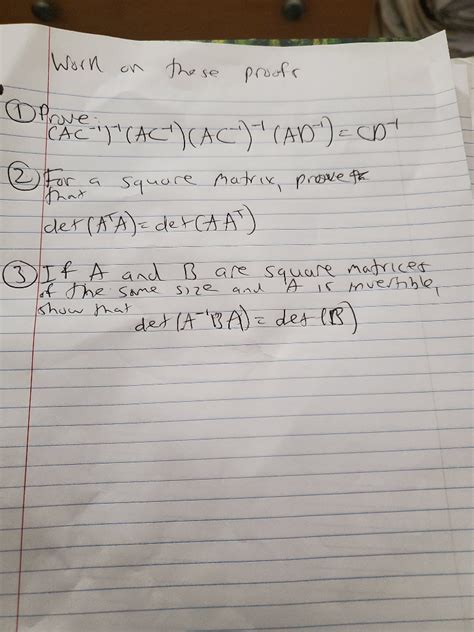 Work on these proofs
① Prove:
(AC⁻¹)⁻¹(AC⁻¹)(AC⁻¹)⁻¹(AD⁻¹)=CD⁻¹
② For a square matrix, prove
that
det(AᵀA)=det(AAᵀ)
③ If A and B are square matrices
of the same size and A is invertible,
show that
det(A⁻¹BA)=det(B)